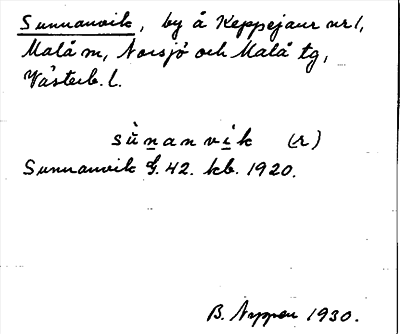 Sunnanvik, by å Keppejaur nr 1,
Malå sn, Norsjö och Malå tg,
Västerb. l.
sùnanvík (r)
Sunnanvik G. 42. kb. 1920.
B. Nyppen 1930.